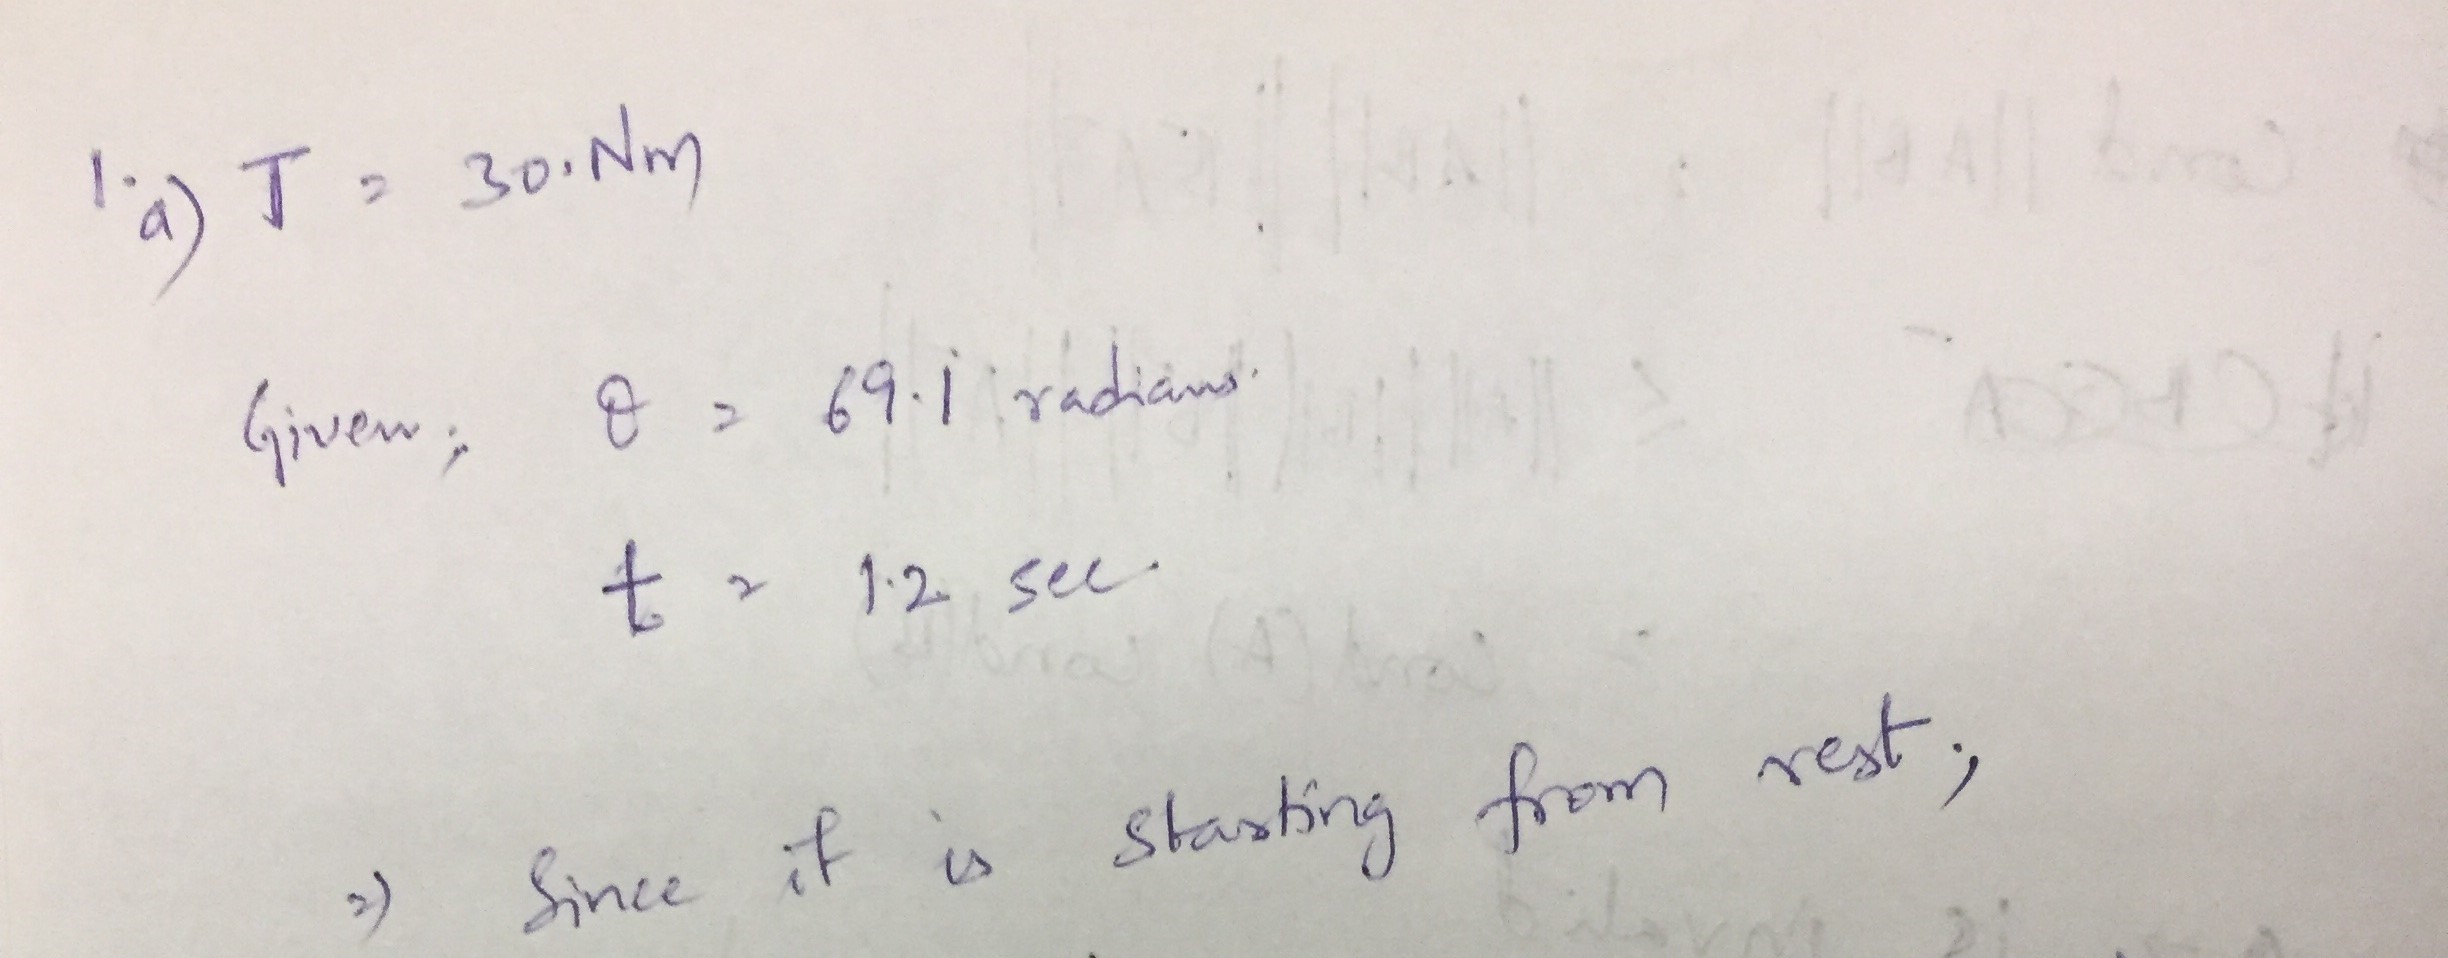 1.a) T = 30.Nm
Given; θ = 69.1 radians.
t = 1.2 sec.
=) Since it is starting from rest;